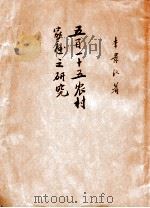 李景漢著
五百一十五農村
家庭之研究